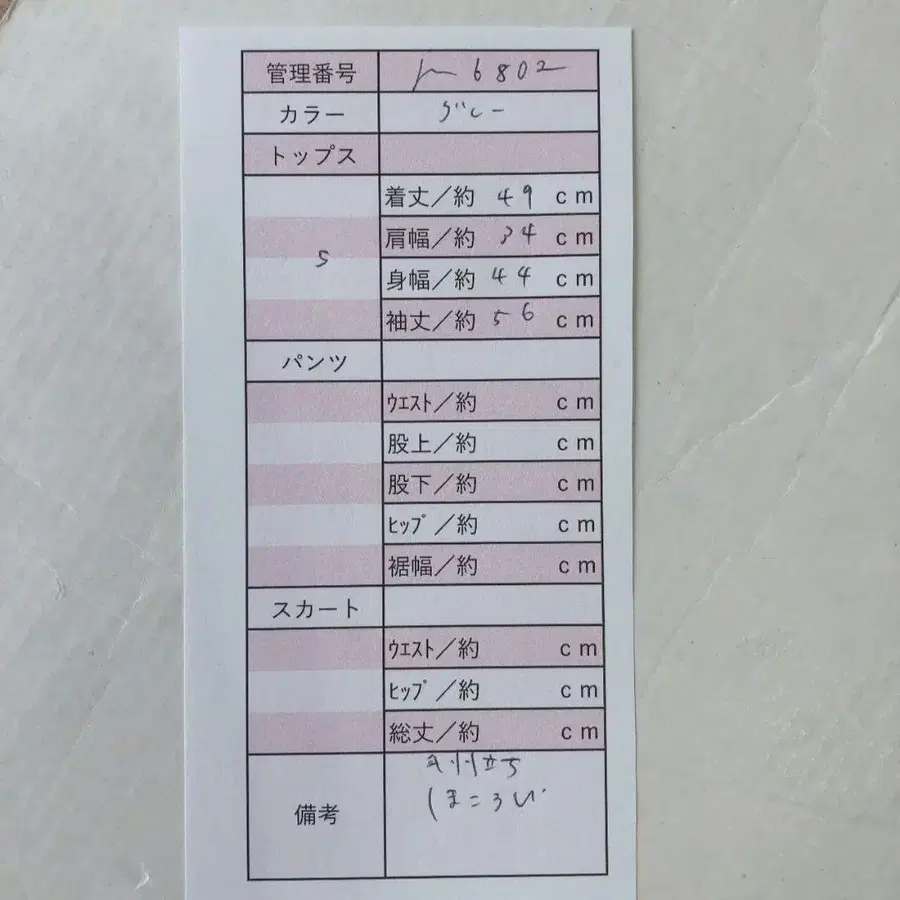 管理番号 6802
カラー グレー
トップス
着丈／約 49 cm
肩幅／約 34 cm
S
身幅／約 44 cm
袖丈／約 56 cm
パンツ
ｳｴｽﾄ／約 cm
股上／約 cm
股下／約 cm
ﾋｯﾌﾟ／約 cm
裾幅／約 cm
スカート
ｳｴｽﾄ／約 cm
ﾋｯﾌﾟ／約 cm
総丈／約 cm
立ち
備考 ほころび